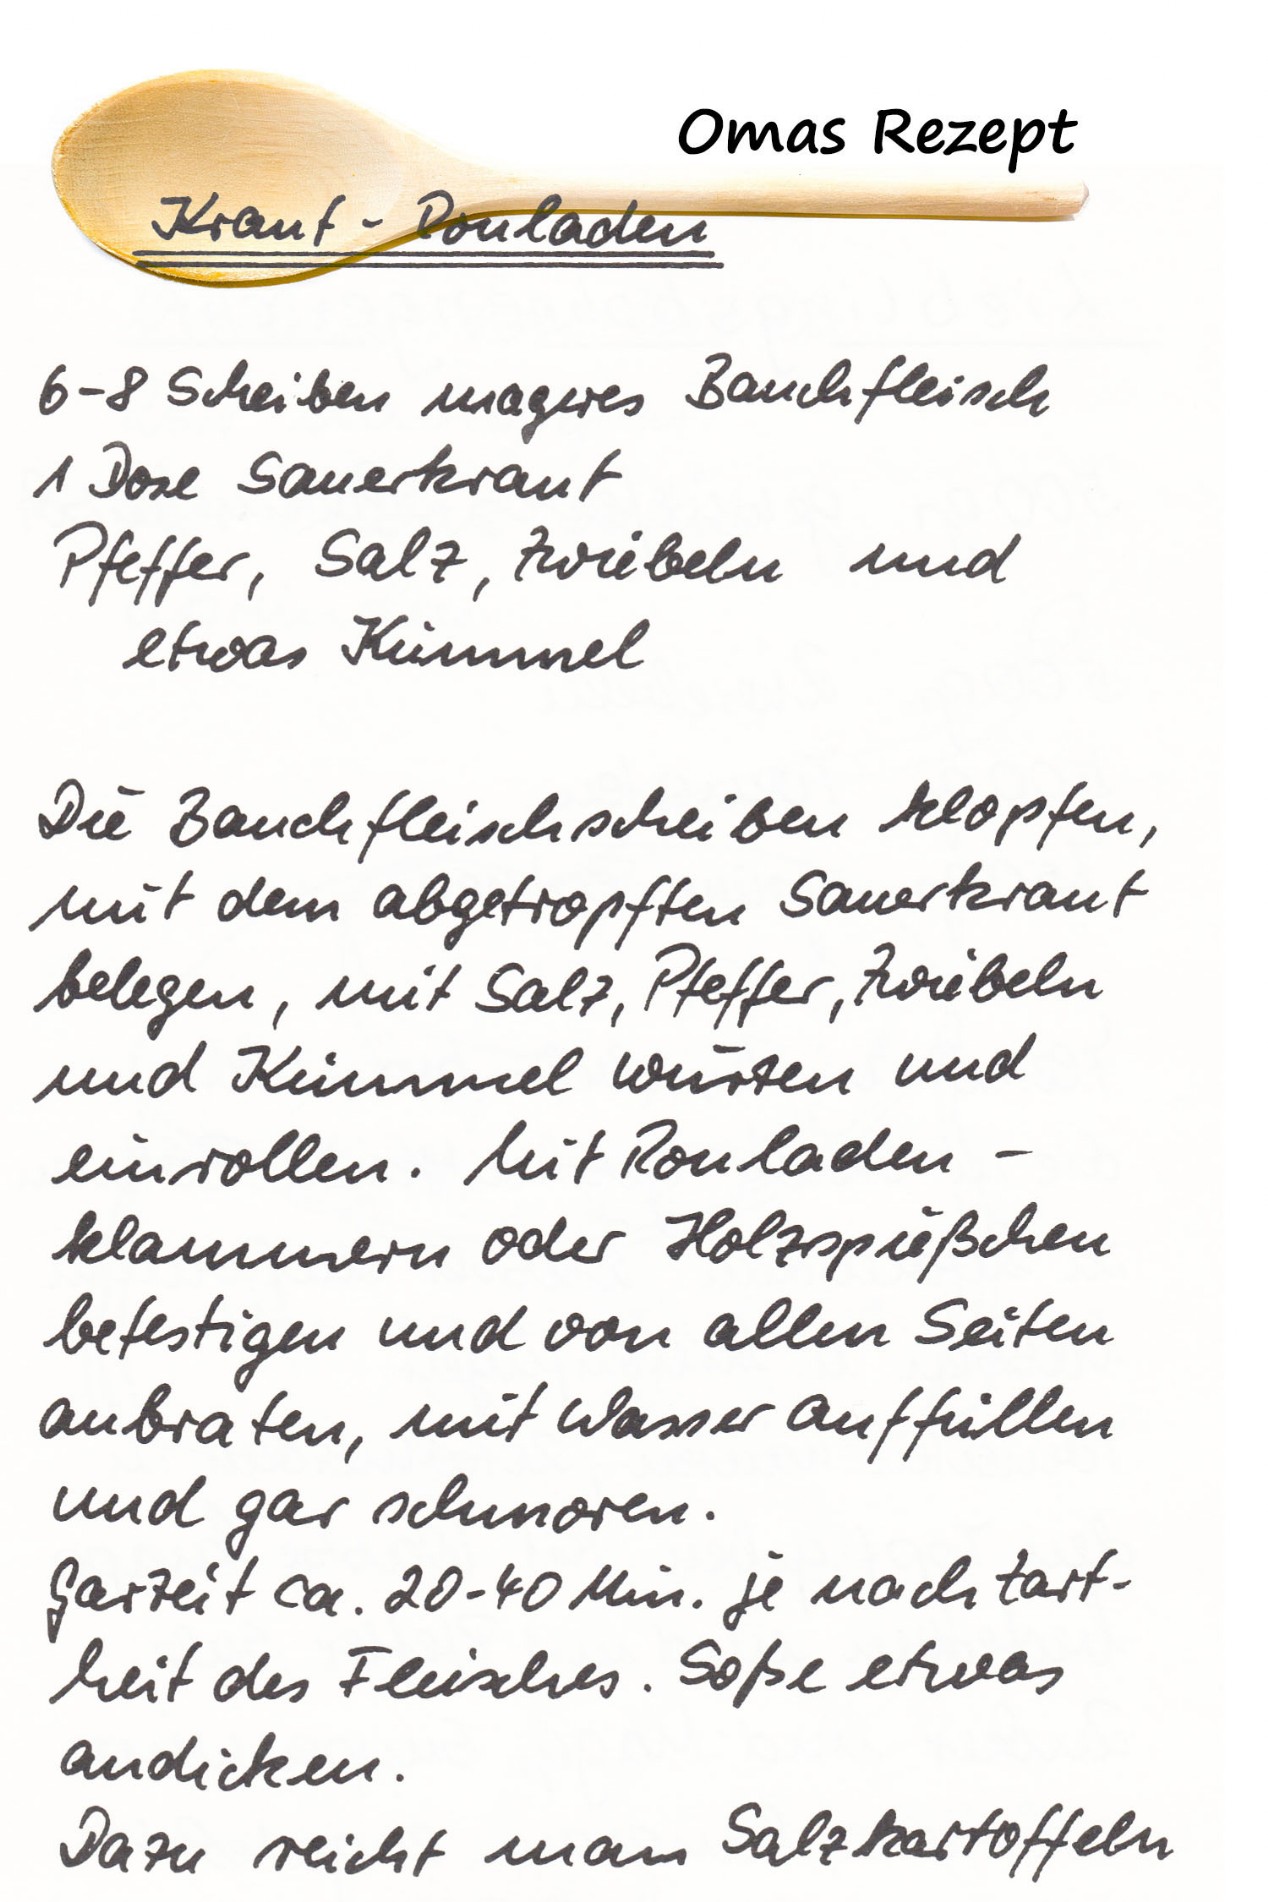 Omas Rezept
Kraut - Rouladen
6-8 Scheiben mageres Bauchfleisch
1 Dose Sauerkraut
Pfeffer, Salz, Zwiebeln und
etwas Kümmel
Die Bauchfleischscheiben klopfen,
mit dem abgetropften Sauerkraut
belegen, mit Salz, Pfeffer, Zwiebeln
und Kümmel würzen und
einrollen. Mit Rouladen-
klammern oder Holzspießchen
befestigen und von allen Seiten
anbraten, mit Wasser auffüllen
und gar schmoren.
Garzeit ca. 20-40 Min. je nach Zart-
heit des Fleisches. Soße etwas
andicken.
Dazu reicht man Salzkartoffeln